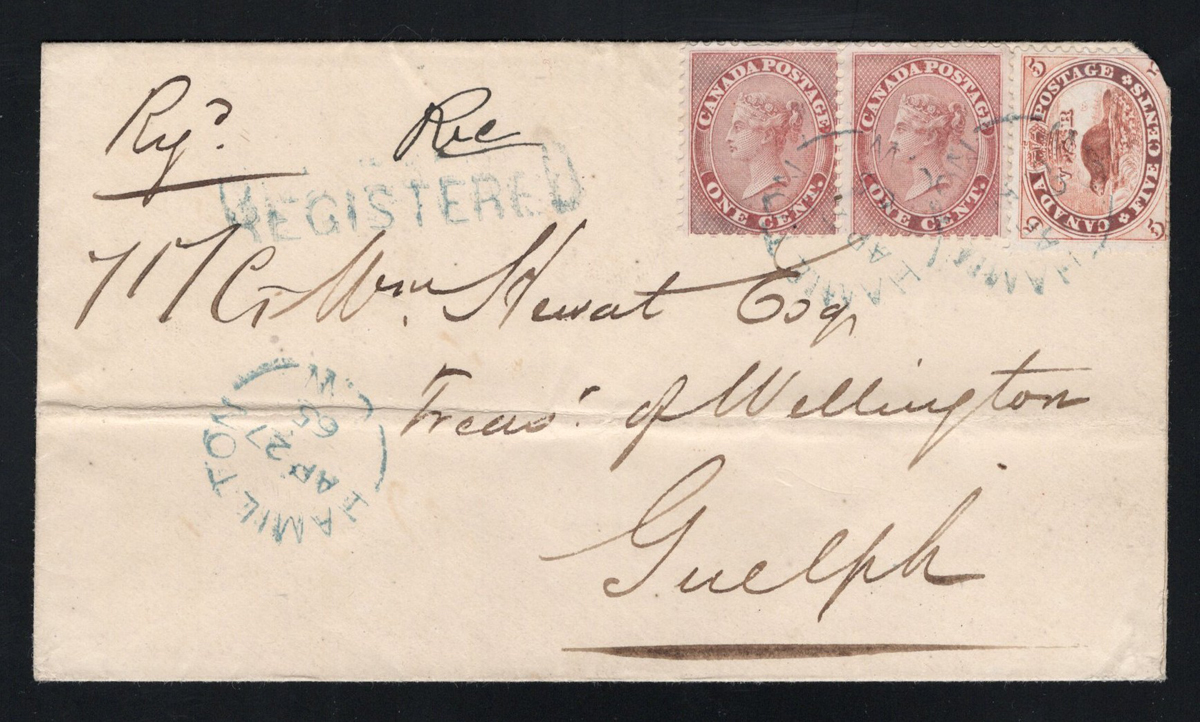 Rec
REGISTERED
CANADA POSTAGE
ONE CENT.
CANADA POSTAGE
ONE CENT.
CANADA POSTAGE
FIVE CENTS
5 5 5 5
Wm. Hewat Esq
Treas. of Wellington
Guelph
HAMILTON
AP 27
HAMIL
HAMIL